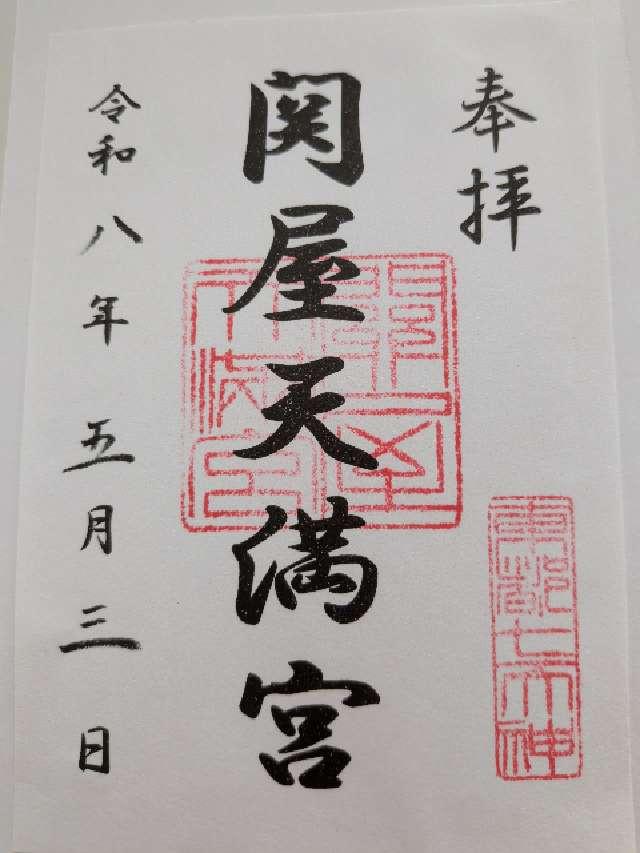 奉拝
関屋天満宮
令和八年五月三日
東都七天神